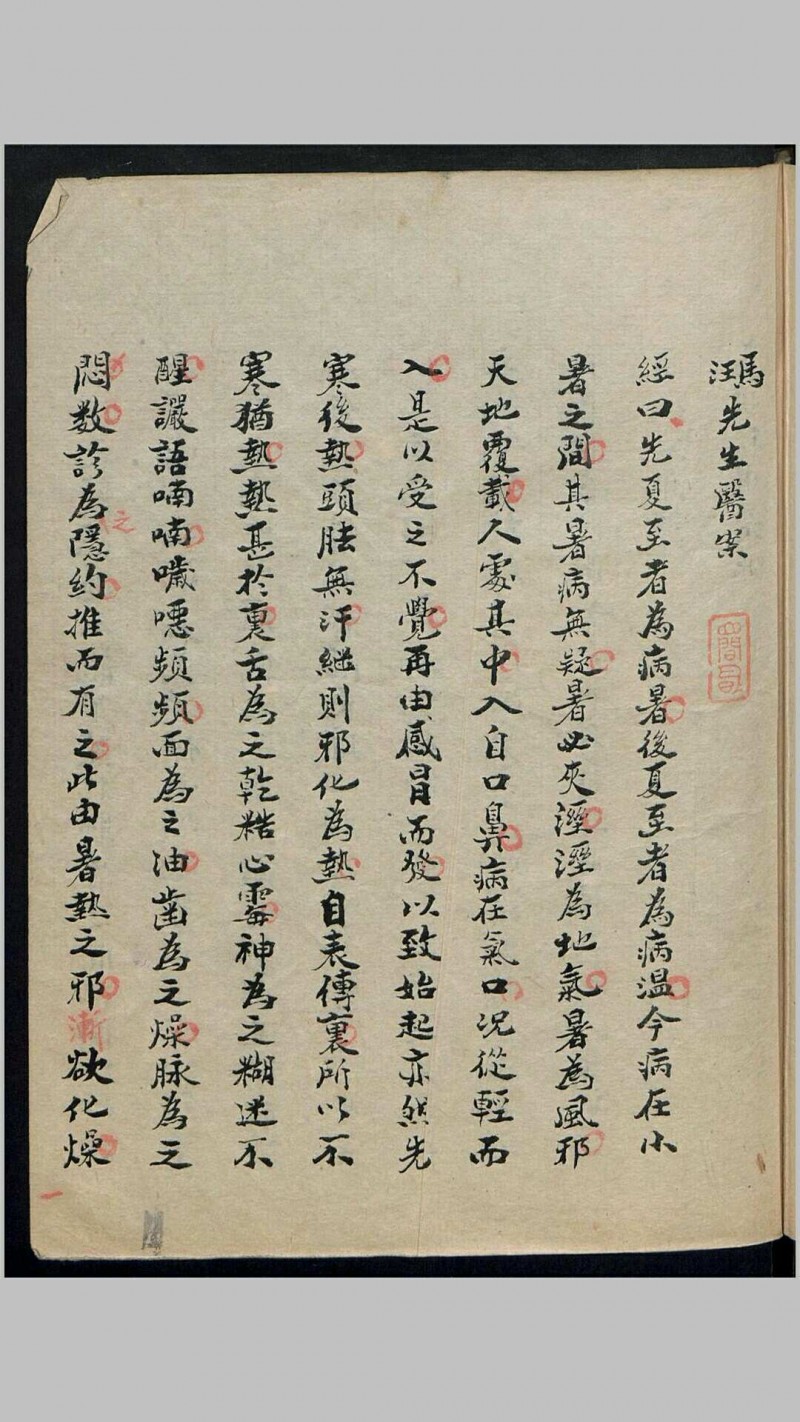 馮汪先生醫案
經曰先夏至者為病暑後夏至者為病温今病在小
暑之間其暑病無疑暑必夾溼溼為地氣暑為風邪
天地覆載人處其中入自口鼻病在氣口况從輕而
入是以受之不覺再由感冒而發以致始起亦然先
寒後熱頭肢無汗継則邪化為熱自表傳裏所以不
寒猶熱熱甚於裏舌為之乾糙心霧神為之糊迷不
醒讝語喃喃噦噁頻頻面為之油齒為之燥脉為之
悶数診為之隱約推而有之此由暑熱之邪漸欲化燥